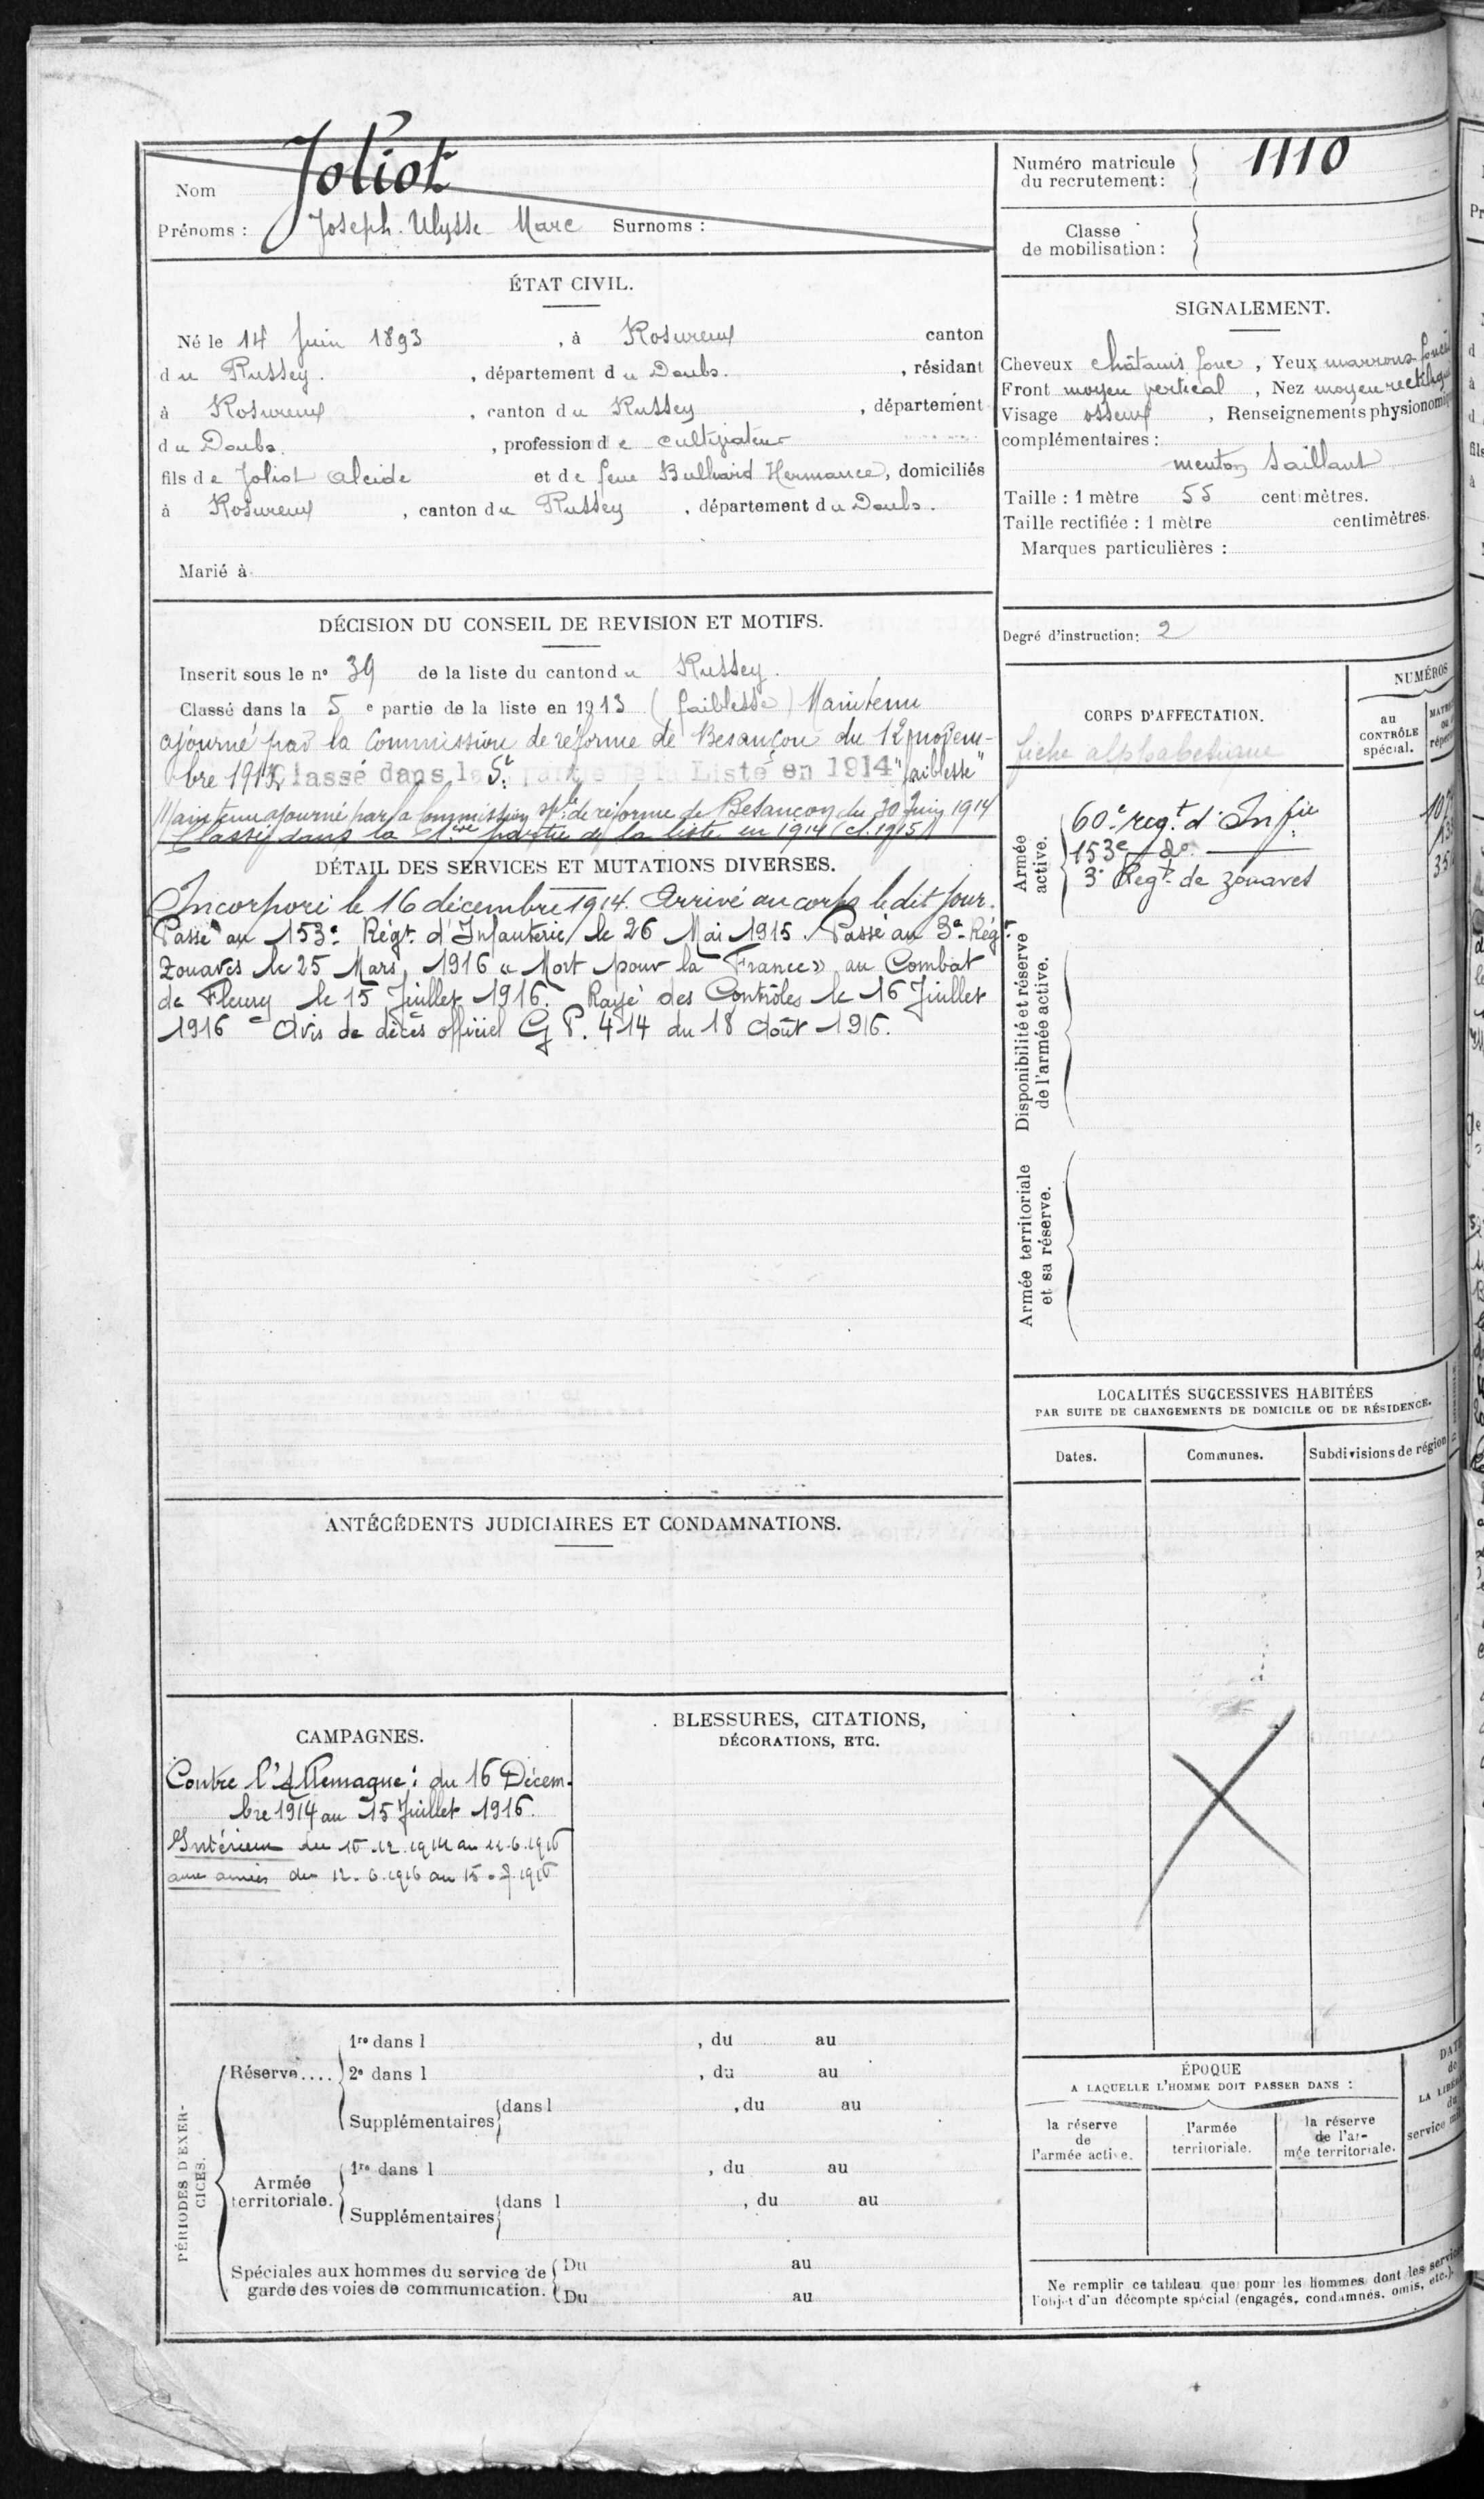 Nom Joliot
Prénoms : Joseph Ulysse Marc Surnoms :
Numéro matricule du recrutement : 1110
Classe de mobilisation :
ÉTAT CIVIL.
Né le 14 Juin 1893, à Rosureux canton
du Russey, département du Doubs, résidant
à Rosureux, canton du Russey, département
du Doubs, profession de cultivateur
fils de Joliot Alcide et de feue Bulliard Hermance, domiciliés
à Rosureux, canton du Russey, département du Doubs.
Marié à
SIGNALEMENT.
Cheveux châtains fonc, Yeux marrons foncés
Front moyen vertical, Nez moyen rectiligne
Visage osseux, Renseignements physionomiq
complémentaires :
menton saillant
Taille : 1 mètre 55 centimètres.
Taille rectifiée : 1 mètre centimètres.
Marques particulières :
Degré d'instruction : 2
DÉCISION DU CONSEIL DE REVISION ET MOTIFS.
Inscrit sous le n° 39 de la liste du canton du Russey.
Classé dans la 5e partie de la liste en 1913 (faiblesse) Maintenu
ajourné par la Commission de réforme de Besançon du 12 novem-
bre 1913 Classé dans la 5e partie de la Liste en 1914 "faiblesse"
Maintenu ajourné par la Commission sple de réforme de Besançon du 30 Juin 1914
Classé dans la 1ère partie de la liste en 1914 (cl. 1915)
DÉTAIL DES SERVICES ET MUTATIONS DIVERSES.
Incorporé le 16 décembre 1914. Arrivé au corps le dit jour.
Passé au 153e Régt d'Infanterie le 26 Mai 1915. Passé au 3e Régt
Zouaves le 25 Mars 1916 « Mort pour la France » au Combat
de Fleury le 15 Juillet 1916. Rayé des Contrôles le 16 Juillet
1916 Avis de décès officiel G P. 414 du 18 Août 1916.
CORPS D'AFFECTATION.
NUMÉROS
au CONTRÔLE spécial.
fiche alphabétique
Armée active.
60e regt d'Infie
153e do
3e Regt de zouaves
Disponibilité et réserve de l'armée active.
Armée territoriale et sa réserve.
LOCALITÉS SUCCESSIVES HABITÉES
PAR SUITE DE CHANGEMENTS DE DOMICILE OU DE RÉSIDENCE.
Dates. Communes. Subdivisions de région
ANTÉCÉDENTS JUDICIAIRES ET CONDAMNATIONS.
CAMPAGNES.
Contre l'Allemagne : du 16 Décem-
bre 1914 au 15 Juillet 1916.
Intérieur du 16.12.1914 au 11.6.1916
aux armées du 12.6.1916 au 15.7.1916
BLESSURES, CITATIONS,
DÉCORATIONS, ETC.
PÉRIODES D'EXERCICES.
Réserve....
1re dans l , du au
2e dans l , du au
Supplémentaires dans l , du au
Armée territoriale.
1re dans l , du au
Supplémentaires dans l , du au
Spéciales aux hommes du service de
garde des voies de communication.
Du au
Du au
ÉPOQUE
A LAQUELLE L'HOMME DOIT PASSER DANS :
la réserve de l'armée active.
l'armée territoriale.
la réserve de l'ar-mée territoriale.
Ne remplir ce tableau que pour les hommes dont les services
l'objet d'un décompte spécial (engagés, condamnés, omis, etc.).